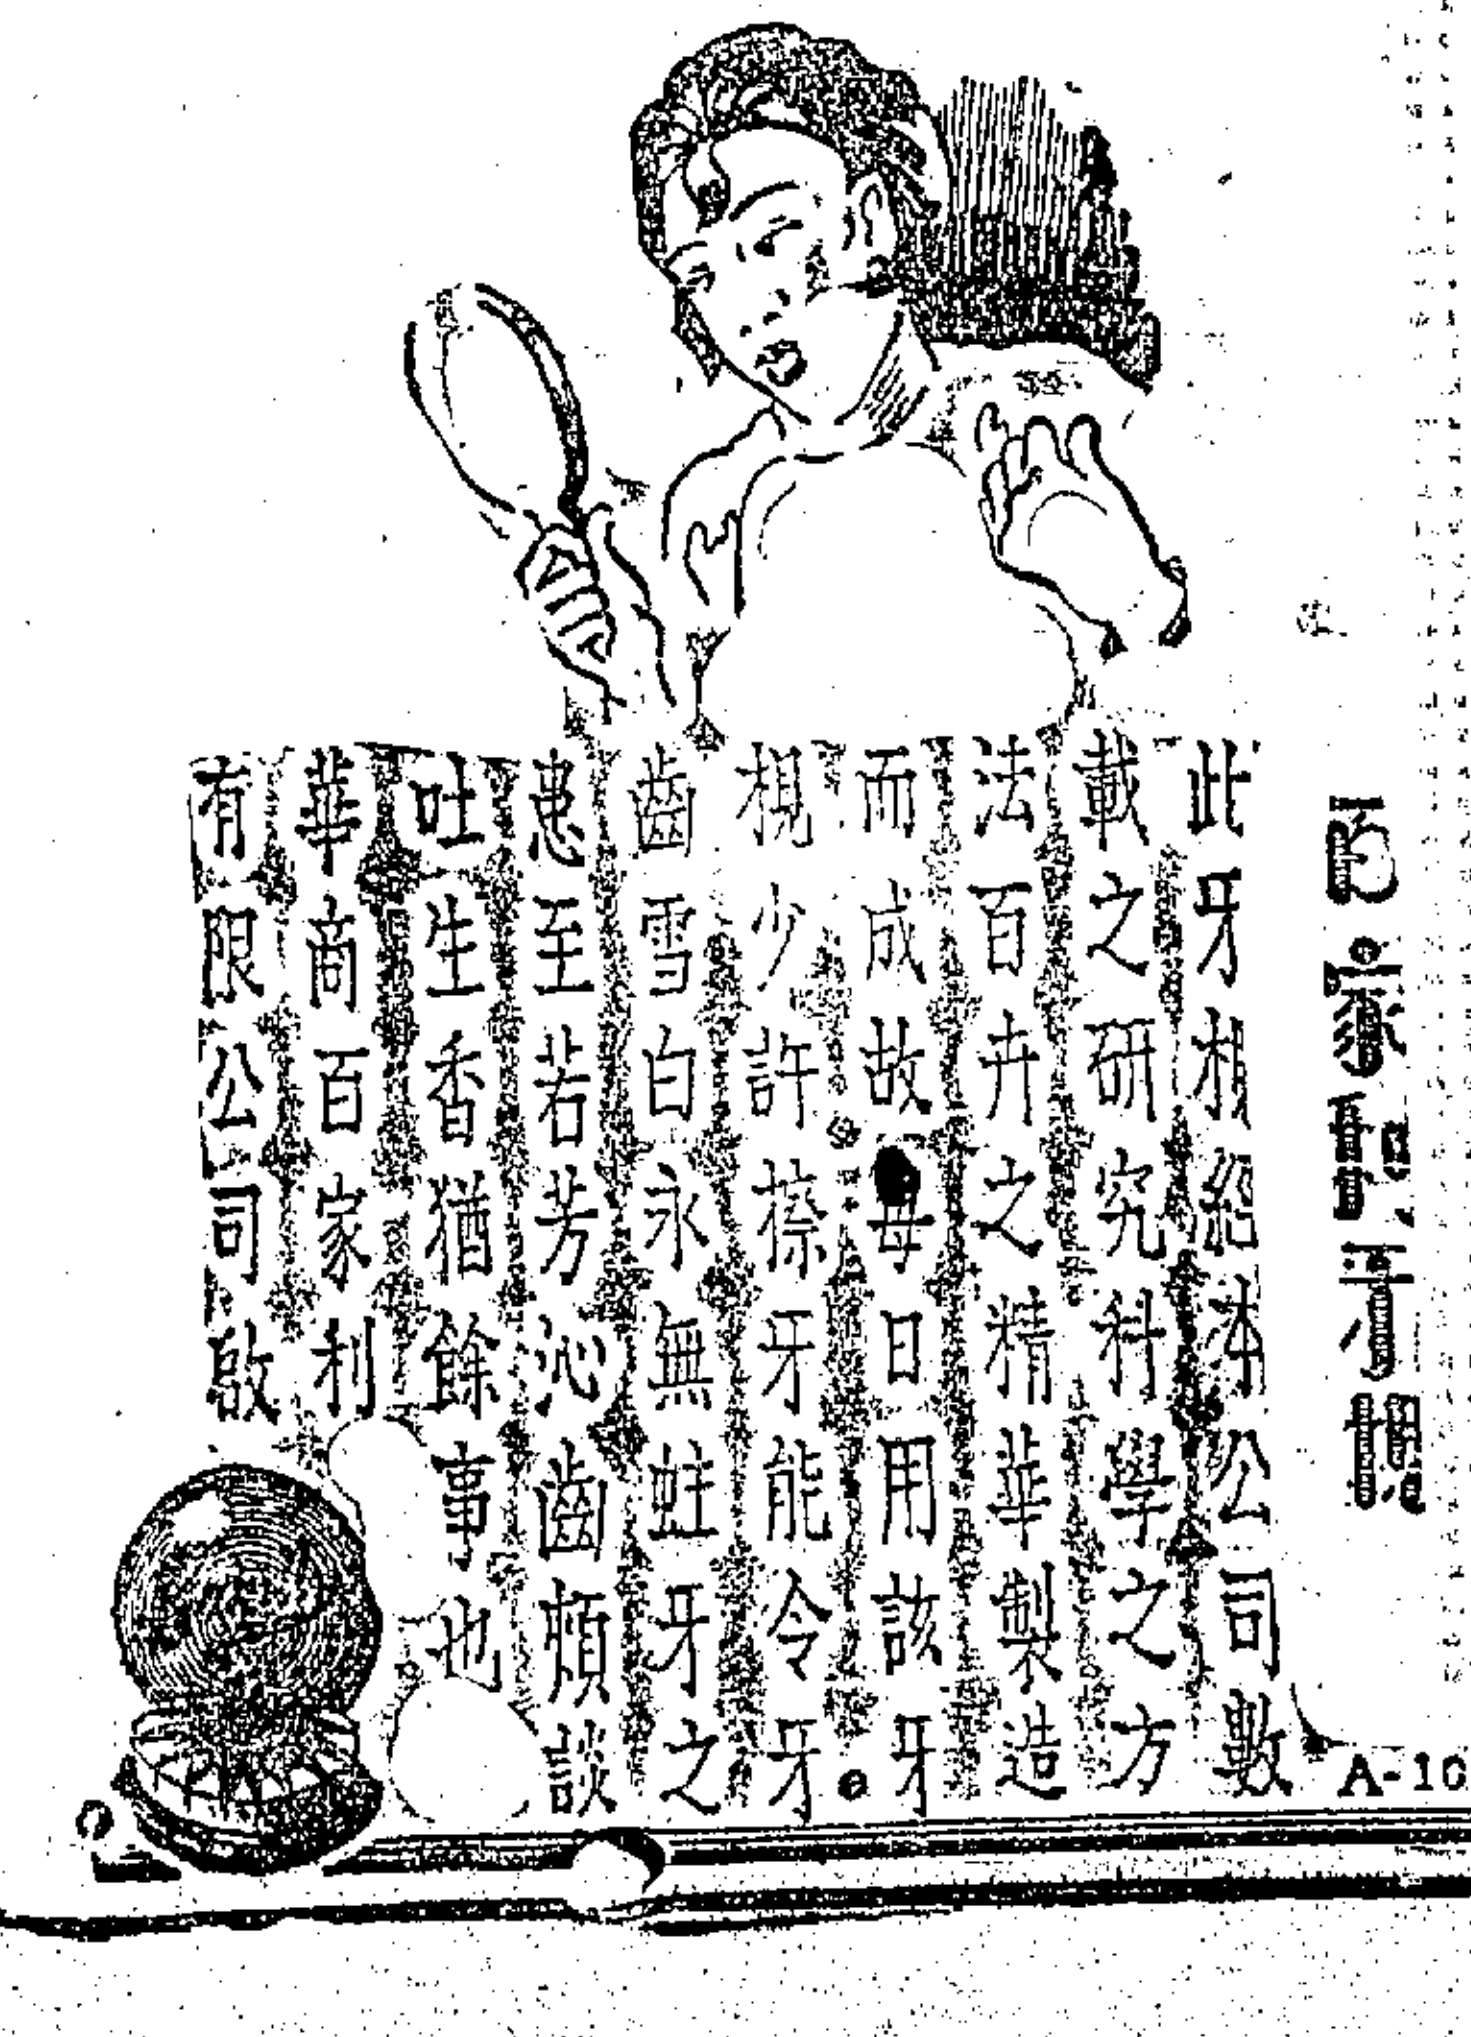 百家牙梘
此牙梘經本公司數
載之研究科學之方
法百卉之精華製造
而成故每日用該牙
梘少許擦牙能令牙
齒雪白永無蛀牙之
患至若芳沁齒頰談
吐生香猶餘事也
華商百家利
有限公司啟
A-10